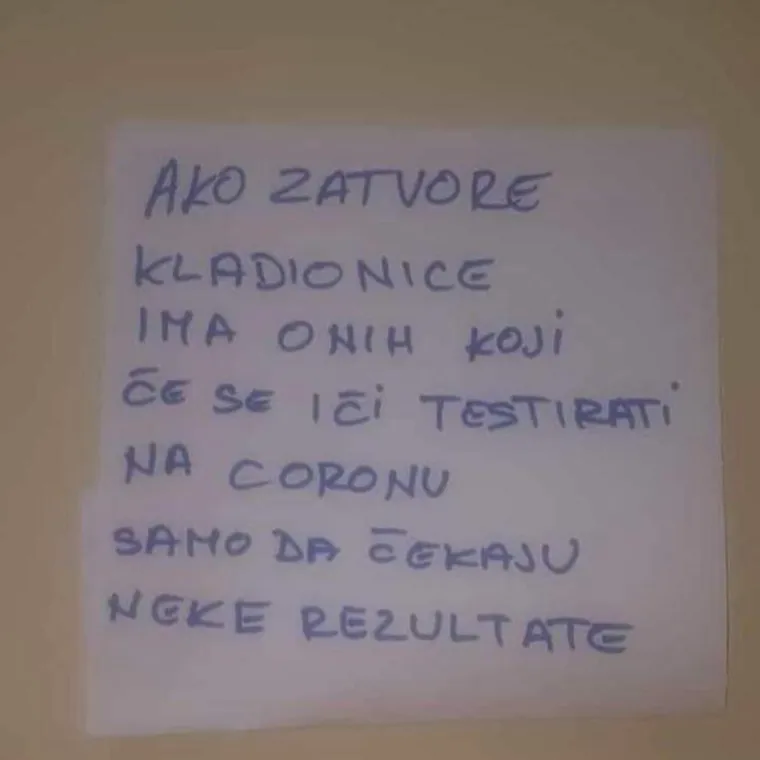 AKO ZATVORE
KLADIONICE
IMA ONIH KOJI
ČE SE IČI TESTIRATI
NA CORONU
SAMO DA ČEKAJU
NEKE REZULTATE